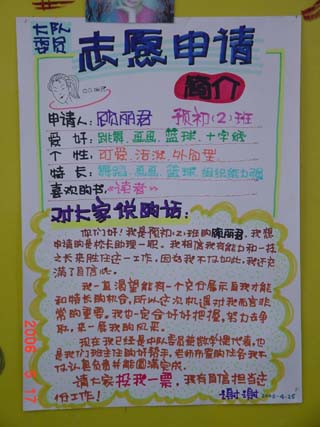 大队
委员
志愿申请
简介
申请人：顾丽君 预初(2)班
爱 好：跳舞、画画、篮球、十字绣
个 性：可爱、活泼、外向型
特 长：舞蹈、画画、篮球、组织能力强
喜欢的书《读者》
对大家说的话：
你们好！我是预初(2)班的顾丽君，我想
申请的是校长助理一职。我相信我有能力和一技
之长来胜任这一工作。因为我不仅如此，我还充
满了自信心。
我一直渴望能有一个充分展示自我才能
和特长的机会，所以这次机遇对我而言非常
的重要。我也一定会好好把握，努力去争
取，来一展我的风采。
现在我已经是中队委员兼数学课代表，也
是我们班主任的好帮手，老师布置的任务我不
仅认真负责并能圆满完成。
请大家投我一票，我有自信担当这
份工作！ 谢谢 2006-4-25
2006 5 17